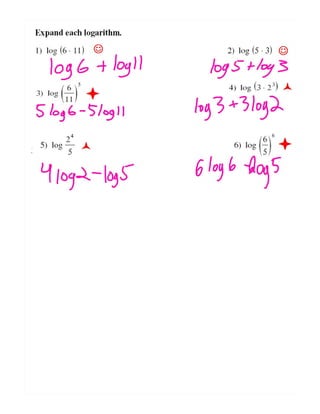 Expand each logarithm.
1) log (6 · 11)
2) log (5 · 3)
log 6 + log 11
log 5 + log 3
3) log (6/11)^5
4) log (3 · 2^3)
5 log 6 - 5 log 11
log 3 + 3 log 2
5) log 2^4/5
6) log (6/5)^6
4 log 2 - log 5
6 log 6 - log 5